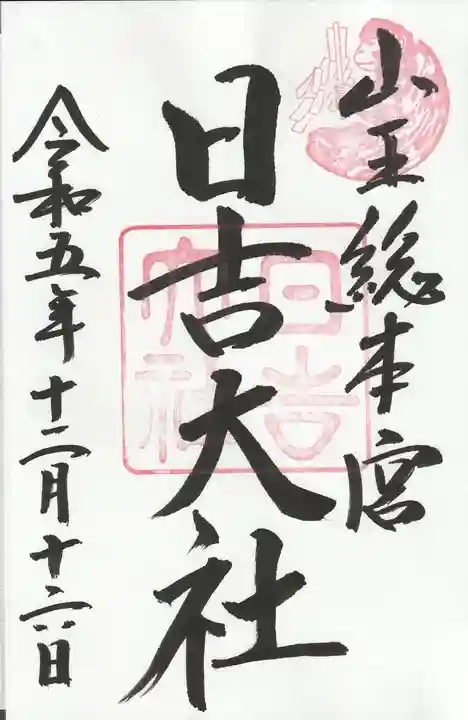 山王総本宮
日吉大社
令和五年十二月十六日
日吉
大社